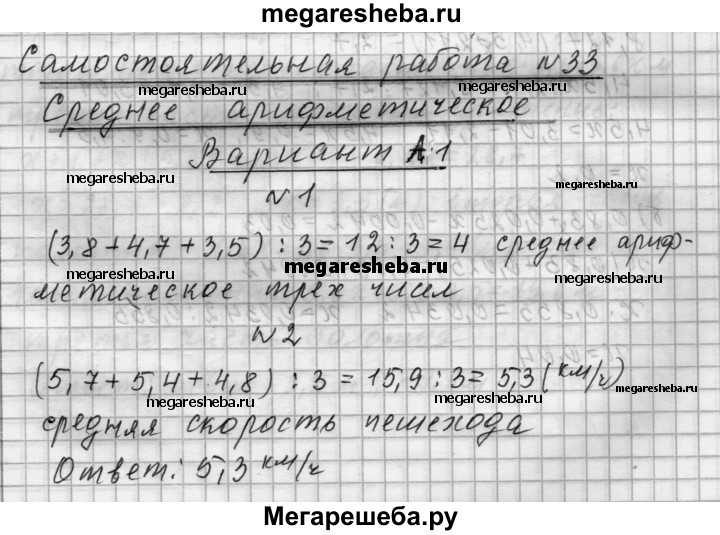 megaresheba.ru
Самостоятельная работа №33
megaresheba.ru megaresheba.ru
Среднее арифметическое
Вариант А1
megaresheba.ru megaresheba.ru
№1
(3,8+4,7+3,5):3=12:3=4 среднее ариф-
megaresheba.ru megaresheba.ru megaresheba.ru
метическое трех чисел
№2
(5,7+5,4+4,8):3=15,9:3=5,3(км/ч)
megaresheba.ru megaresheba.ru megaresheba.ru
средняя скорость пешехода
Ответ: 5,3 км/ч
Мегарешеба.ру